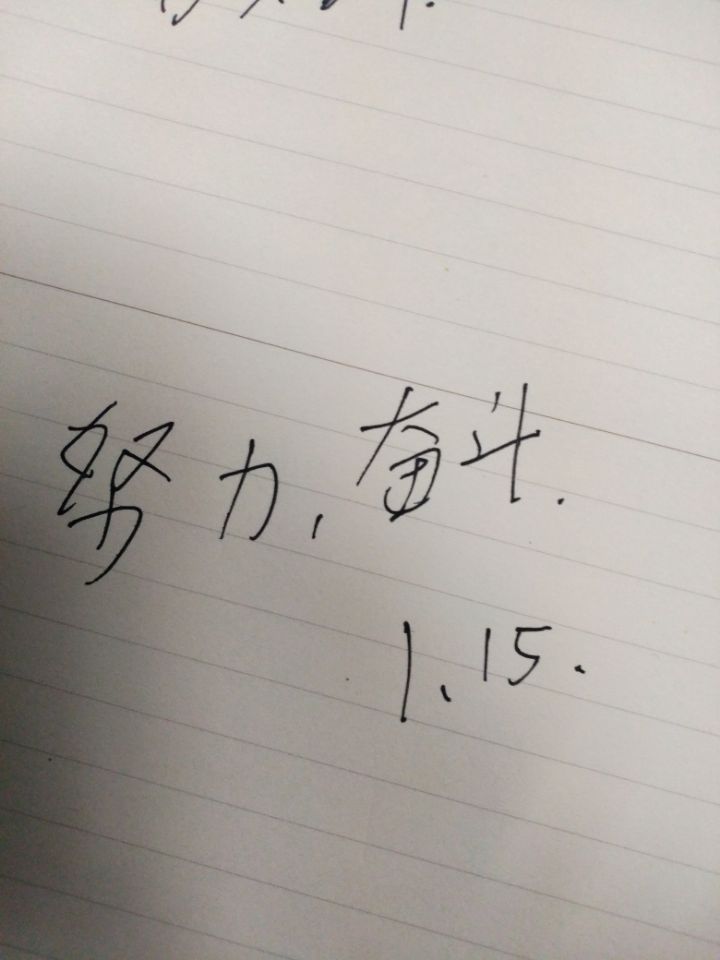 努力,奋斗.
1.15.